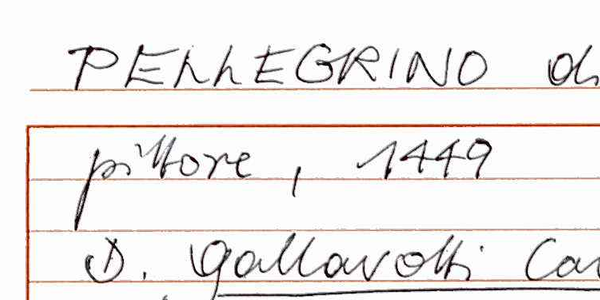 PELLEGRINO di
pittore, 1449
D. Gallavotti Cav